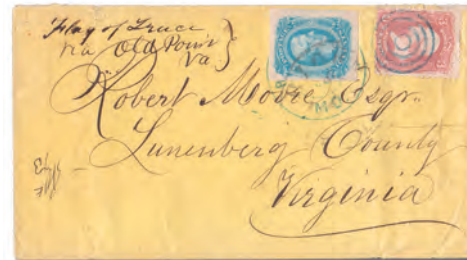 Flag of Truce
via Old Point
Va
Robert Moore Esqr.
Lunenberg County
Virginia
MO